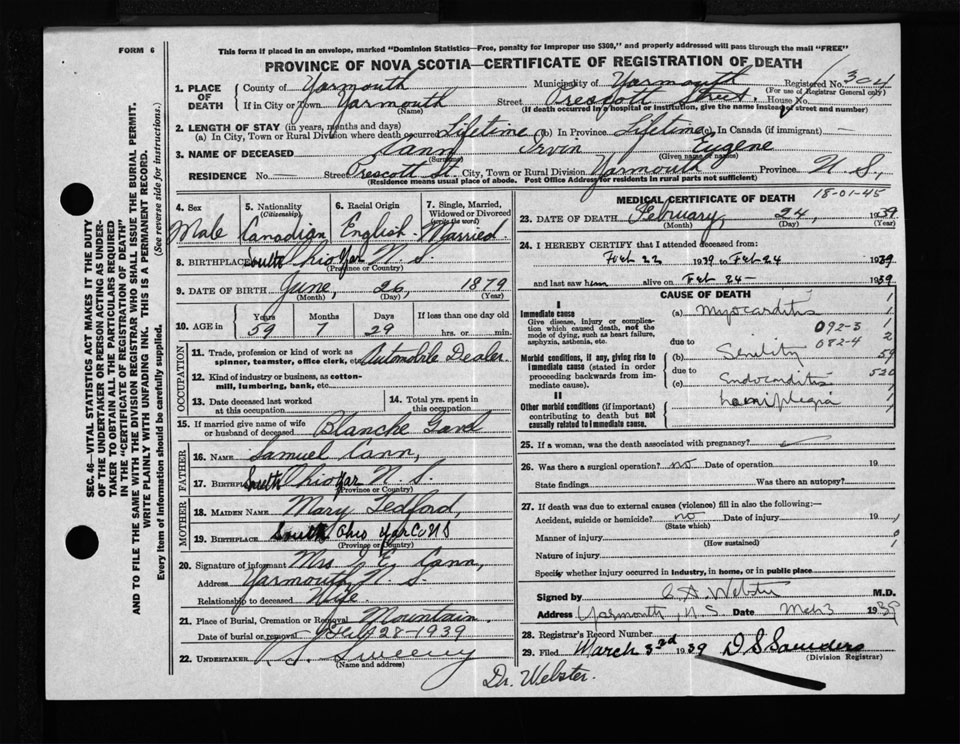 FORM 6
This form if placed in an envelope, marked "Dominion Statistics—Free, penalty for improper use $300," and properly addressed will pass through the mail "FREE"
PROVINCE OF NOVA SCOTIA—CERTIFICATE OF REGISTRATION OF DEATH
SEC. 46—VITAL STATISTICS ACT MAKES IT THE DUTY
OF THE UNDERTAKER OR PERSON ACTING AS UNDER-
TAKER TO OBTAIN ALL THE PARTICULARS REQUIRED
IN THE "CERTIFICATE OF REGISTRATION OF DEATH"
AND TO FILE THE SAME WITH THE DIVISION REGISTRAR WHO SHALL ISSUE THE BURIAL PERMIT.
WRITE PLAINLY WITH UNFADING INK. THIS IS A PERMANENT RECORD.
Every item of information should be carefully supplied. (See reverse side for instructions.)
1. PLACE OF DEATH County of Yarmouth Municipality of Yarmouth Registered No. 304
(For use of Registrar General only)
If in City or Town Yarmouth Street Prescott House No.
(Name) (If death occurred in a hospital or institution, give the name instead of street and number)
2. LENGTH OF STAY (in years, months and days)
(a) In City, Town or Rural Division where death occurred Lifetime (b) In Province Lifetime (c) In Canada (if immigrant) —
3. NAME OF DECEASED Cann Irvin Eugene
(Surname) (Given name or names)
RESIDENCE No. — Street Prescott St. City, Town or Rural Division Yarmouth Province N S,
(Residence means usual place of abode. Post Office Address for residents in rural parts not sufficient)
4. Sex Male
5. Nationality (Citizenship) Canadian
6. Racial Origin English
7. Single, Married, Widowed or Divorced (write the word) Married
8. BIRTHPLACE South Ohio Yar N. S.
(Province or Country)
9. DATE OF BIRTH June, 26, 1879
(Month) (Day) (Year)
10. AGE in Years Months Days If less than one day old
59 7 29 hrs. or min.
OCCUPATION
11. Trade, profession or kind of work as spinner, teamster, office clerk, etc. Automobile Dealer.
12. Kind of industry or business, as cotton-mill, lumbering, bank, etc.
13. Date deceased last worked at this occupation
14. Total yrs. spent in this occupation
15. If married give name of wife or husband of deceased Blanche
FATHER
16. NAME Samuel Cann,
17. BIRTHPLACE South Ohio Yar N. S.
(Province or Country)
MOTHER
18. MAIDEN NAME Mary Tedford,
19. BIRTHPLACE South Ohio Yar Co N S
(Province or Country)
20. Signature of informant Mrs I E, Cann,
Address Yarmouth N. S.
Relationship to deceased Wife.
21. Place of Burial, Cremation or Removal Mountain.
Date of burial or removal Feb 28-1939
22. UNDERTAKER Sweeny
(Name and address)
Dr. Webster.
MEDICAL CERTIFICATE OF DEATH
18-01-45
23. DATE OF DEATH February, 24, 1939
(Month) (Day) (Year)
24. I HEREBY CERTIFY that I attended deceased from:
Feb 22 1939 to Feb 24 1939
and last saw him alive on Feb 24— 1939
CAUSE OF DEATH
I
Immediate cause
Give disease, injury or complication which caused death, not the mode of dying, such as heart failure, asphyxia, asthenia, etc.
(a) Myocarditis
092-3
due to 082-4
Morbid conditions, if any, giving rise to immediate cause (stated in order proceeding backwards from immediate cause).
(b) Senility
due to
(c) Endocarditis
II
Other morbid conditions (if important) contributing to death but not causally related to immediate cause.
hemiplegia
1
1
2
59
520
1
25. If a woman, was the death associated with pregnancy?
26. Was there a surgical operation? no Date of operation 19
State findings Was there an autopsy?
27. If death was due to external causes (violence) fill in also the following:
Accident, suicide or homicide? no Date of injury 19
(State which)
Manner of injury 0
(How sustained) 1
Nature of injury
Specify whether injury occurred in industry, in home, or in public place
Signed by Webster M.D.
Address Yarmouth, N.S Date Mch 3 1939
28. Registrar's Record Number
29. Filed March 3rd 1939 D S Saunders
(Division Registrar)